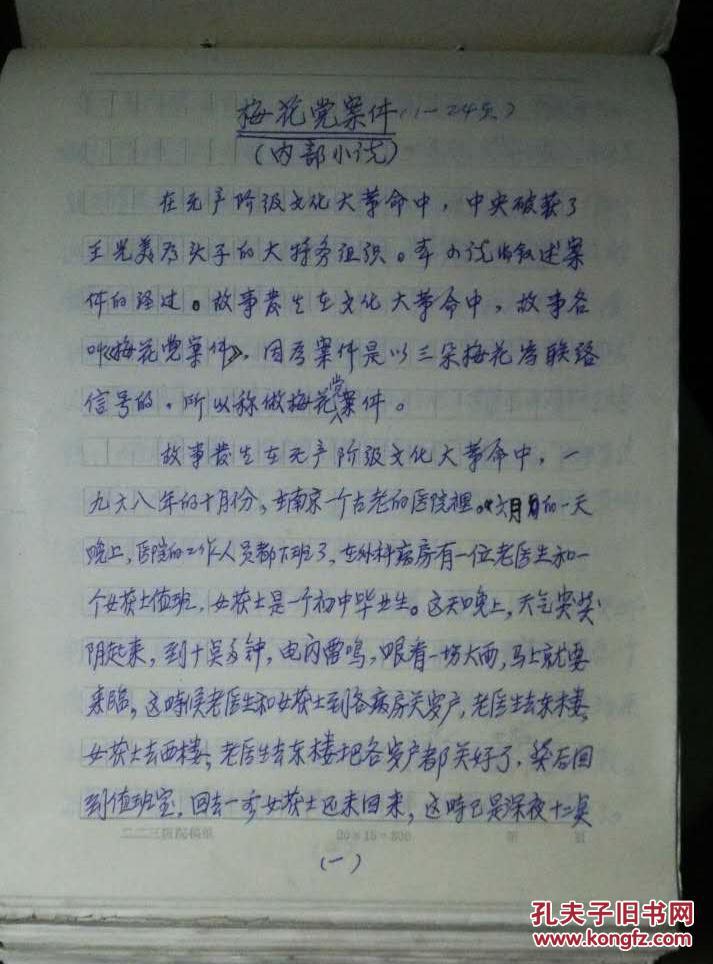 梅花党案件(1—24页)
(内部小说)
在无产阶级文化大革命中，中央破获了
王光美为头子的大特务组织。本小说叙述案
件的经过。故事发生在文化大革命中，故事名
叫《梅花党案件》，因为案件是以三朵梅花为联络
信号的，所以称做梅花党案件。
故事发生在无产阶级文化大革命中，一
九六八年的十月份，在南京一个古老的医院裡。六月的一天
晚上，医院的工作人员都下班了，在外科病房有一位老医生和一
个女护士值班，女护士是一个初中毕业生。这天晚上，天气突然
阴起来，到十点多钟，电闪雷鸣，眼看一场大雨，马上就要
来临，这時候老医生和女护士到各病房关窗户，老医生去东楼，
女护士去西楼；老医生去东楼把各窗户都关好了，然后回
到值班室，回去一看女护士还未回来，这時已是深夜十二点
二二三医院稿纸 20×15=300 第 页
(一)
孔夫子旧书网
www.kongfz.com